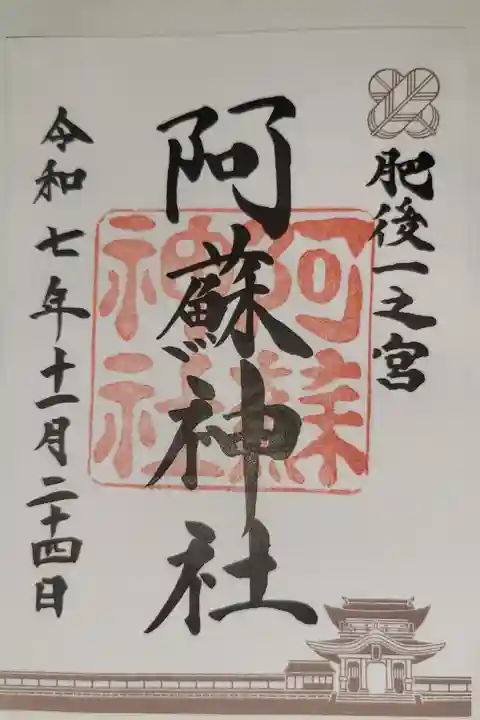 肥後一之宮
阿蘇神社
阿蘇
神社
令和七年十一月二十四日